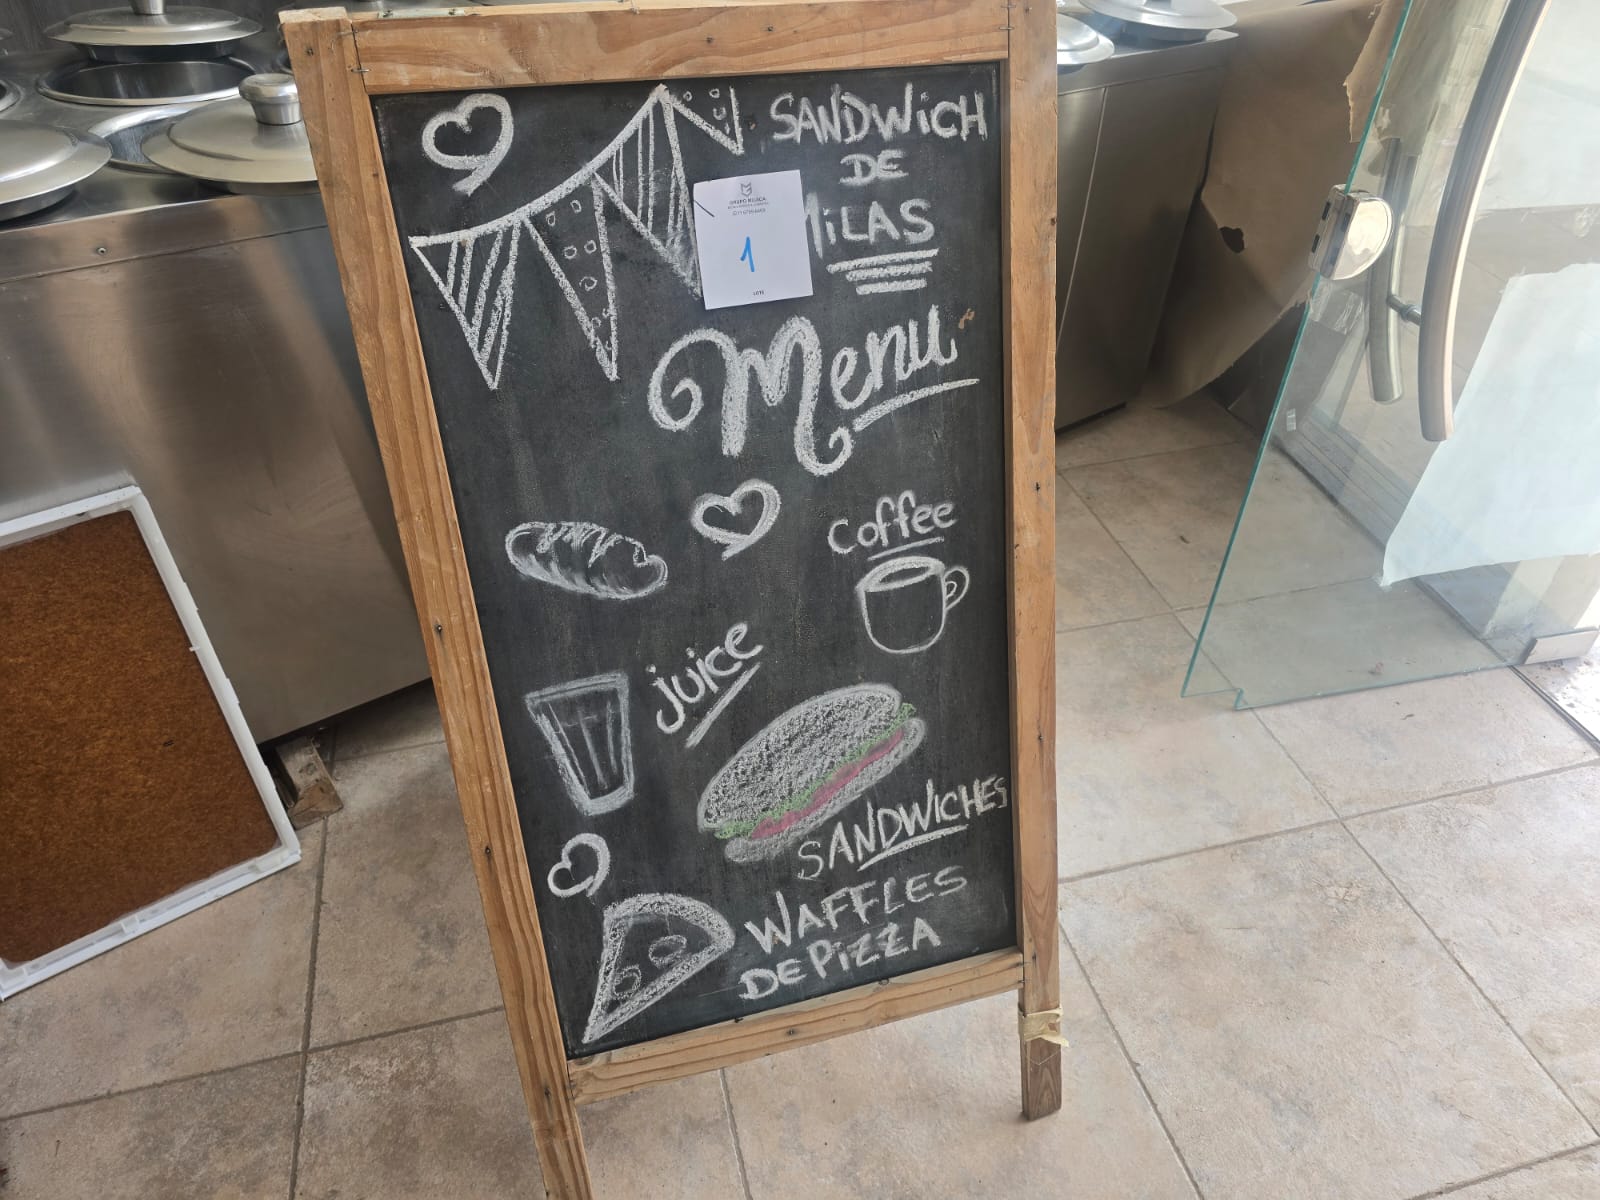 SANDWiCH
DE
MiLAS
GRUPO BILACA
1
LOTE
Menu
Coffee
juice
SANDWICHES
WAFFLES
DE PiZZA